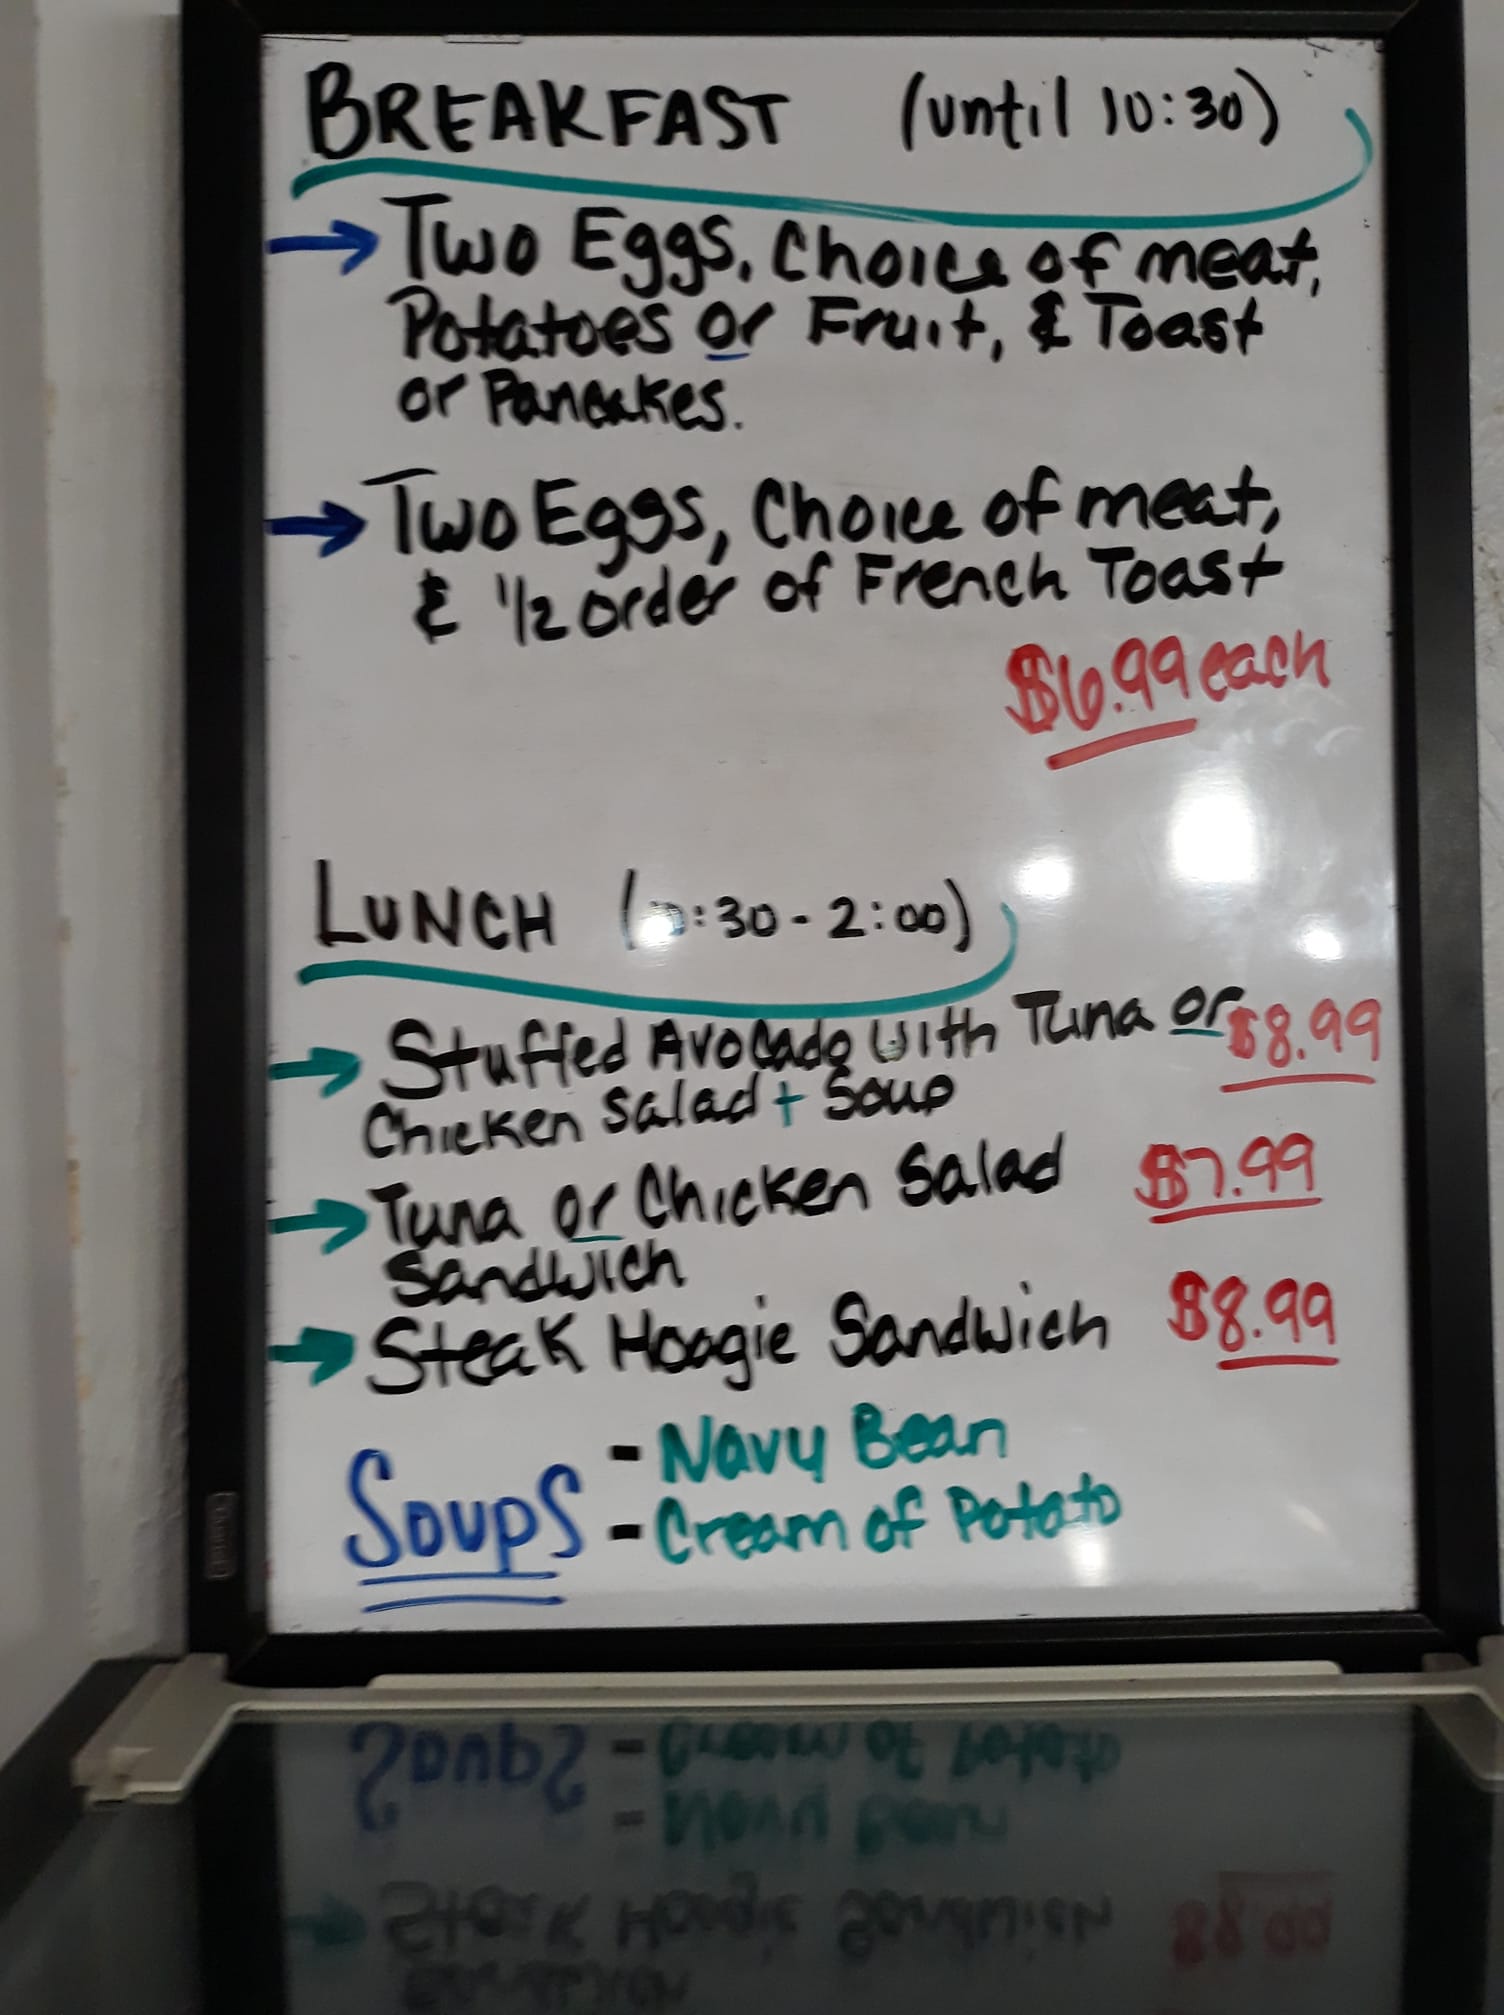 BREAKFAST (until 10:30)
→ Two Eggs, Choice of meat,
Potatoes or Fruit, & Toast
or Pancakes.
→ Two Eggs, Choice of meat,
& 1/2 order of French Toast
$6.99 each
LUNCH (10:30 - 2:00)
→ Stuffed Avocado with Tuna or $8.99
Chicken Salad + Soup
→ Tuna or Chicken Salad $7.99
Sandwich
→ Steak Hoagie Sandwich $8.99
Soups - Navy Bean
- Cream of Potato